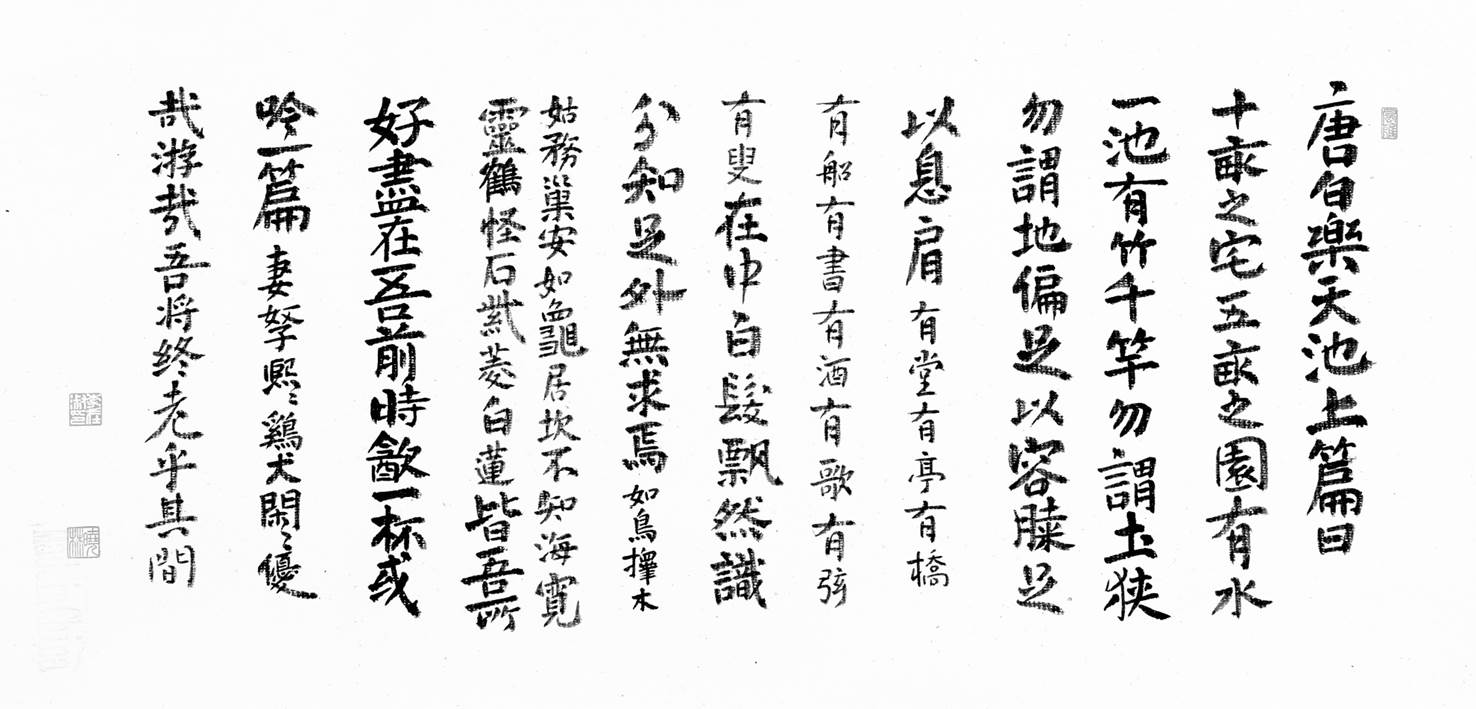 唐白樂天池上篇曰
十畝之宅五畝之園有水
一池有竹千竿勿謂土狹
勿謂地偏足以容膝足
以息肩有堂有亭有橋
有船有書有酒有歌有弦
有叟在中白髮飄然識
分知足外無求焉如鳥擇木
姑務巢安如龜居坎不知海寬
靈鶴怪石紫菱白蓮皆吾所
好盡在吾前時飲一杯或
吟一篇妻孥熙〻鷄犬閑〻優
哉游哉吾将終老乎其間